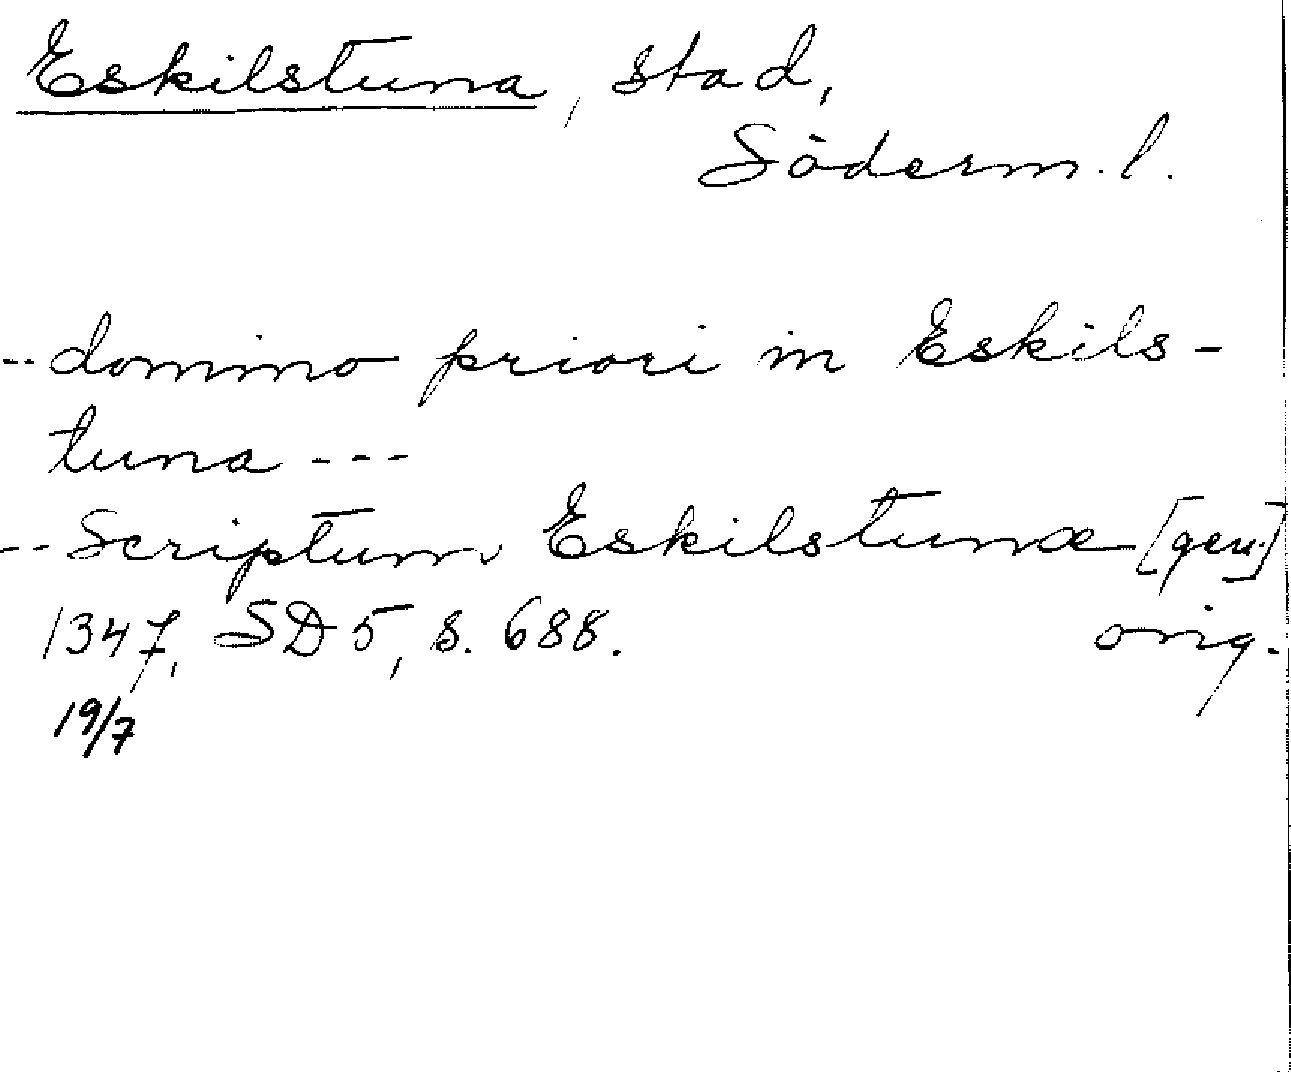 Eskilstuna, stad,
Söderm. l.
-- domino priori in Eskils-
tuna ---
-- Scriptum Eskilstunæ [gen.]
1347, SD 5, s. 688. orig.
19/7